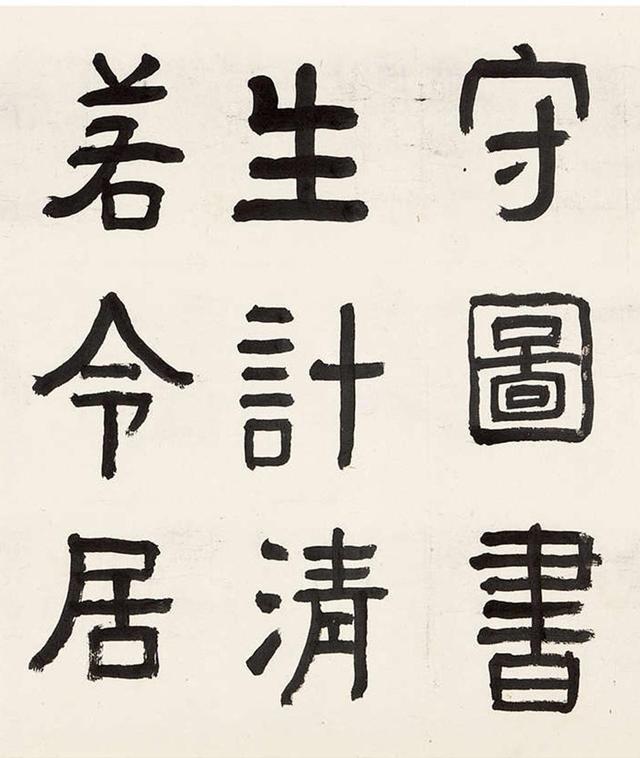 守圖書
生計清
若令居